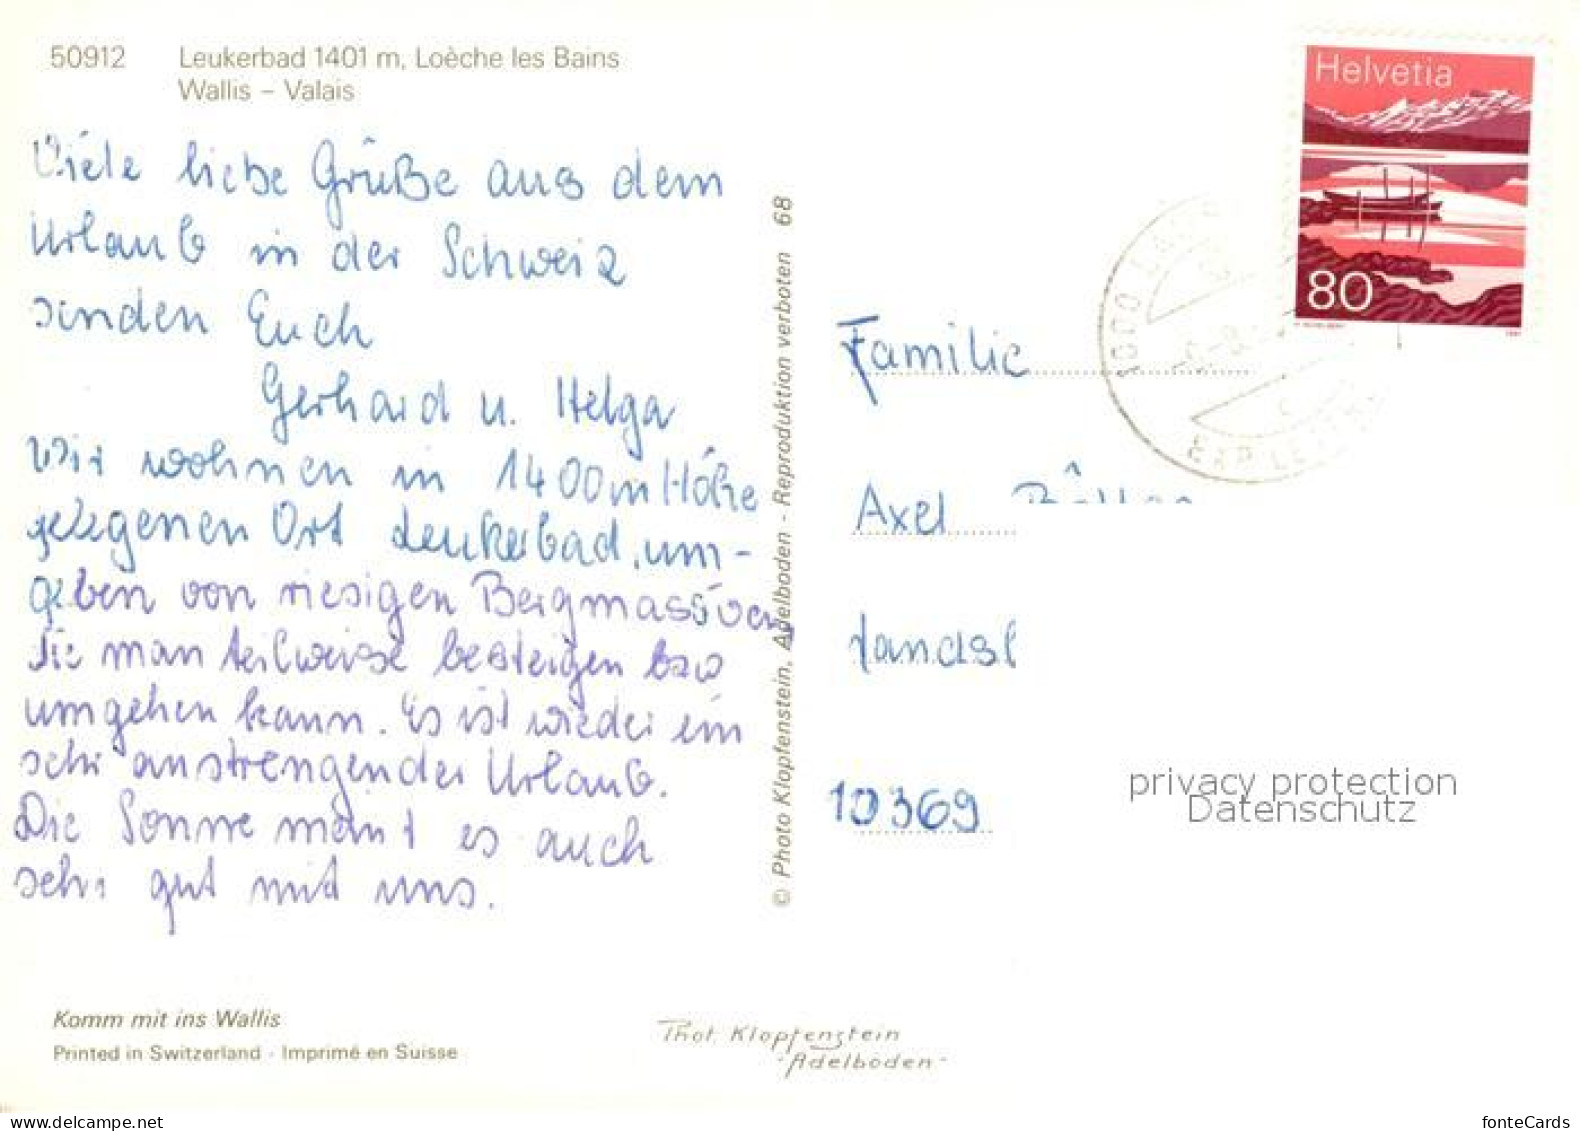 50912 Leukerbad 1401 m, Loèche les Bains
Wallis – Valais
Viele liebe Grüße aus dem
Urlaub in der Schweiz
senden Euch
Gerhard u. Helga
Wir wohnen in 1400m Höhe
gelegenen Ort Leukerbad, um-
geben von riesigen Bergmassiven,
die man teilweise besteigen bzw
umgehen kann. Es ist wieder ein
sehr anstrengender Urlaub.
Die Sonne meint es auch
sehr gut mit uns.
Komm mit ins Wallis
Printed in Switzerland · Imprimé en Suisse
Phot. Klopfenstein
- Adelboden -
© Photo Klopfenstein, Adelboden - Reproduktion verboten 68
Helvetia
80
Familie
Axel
Landsb
10369
privacy protection
Datenschutz
fonteCards